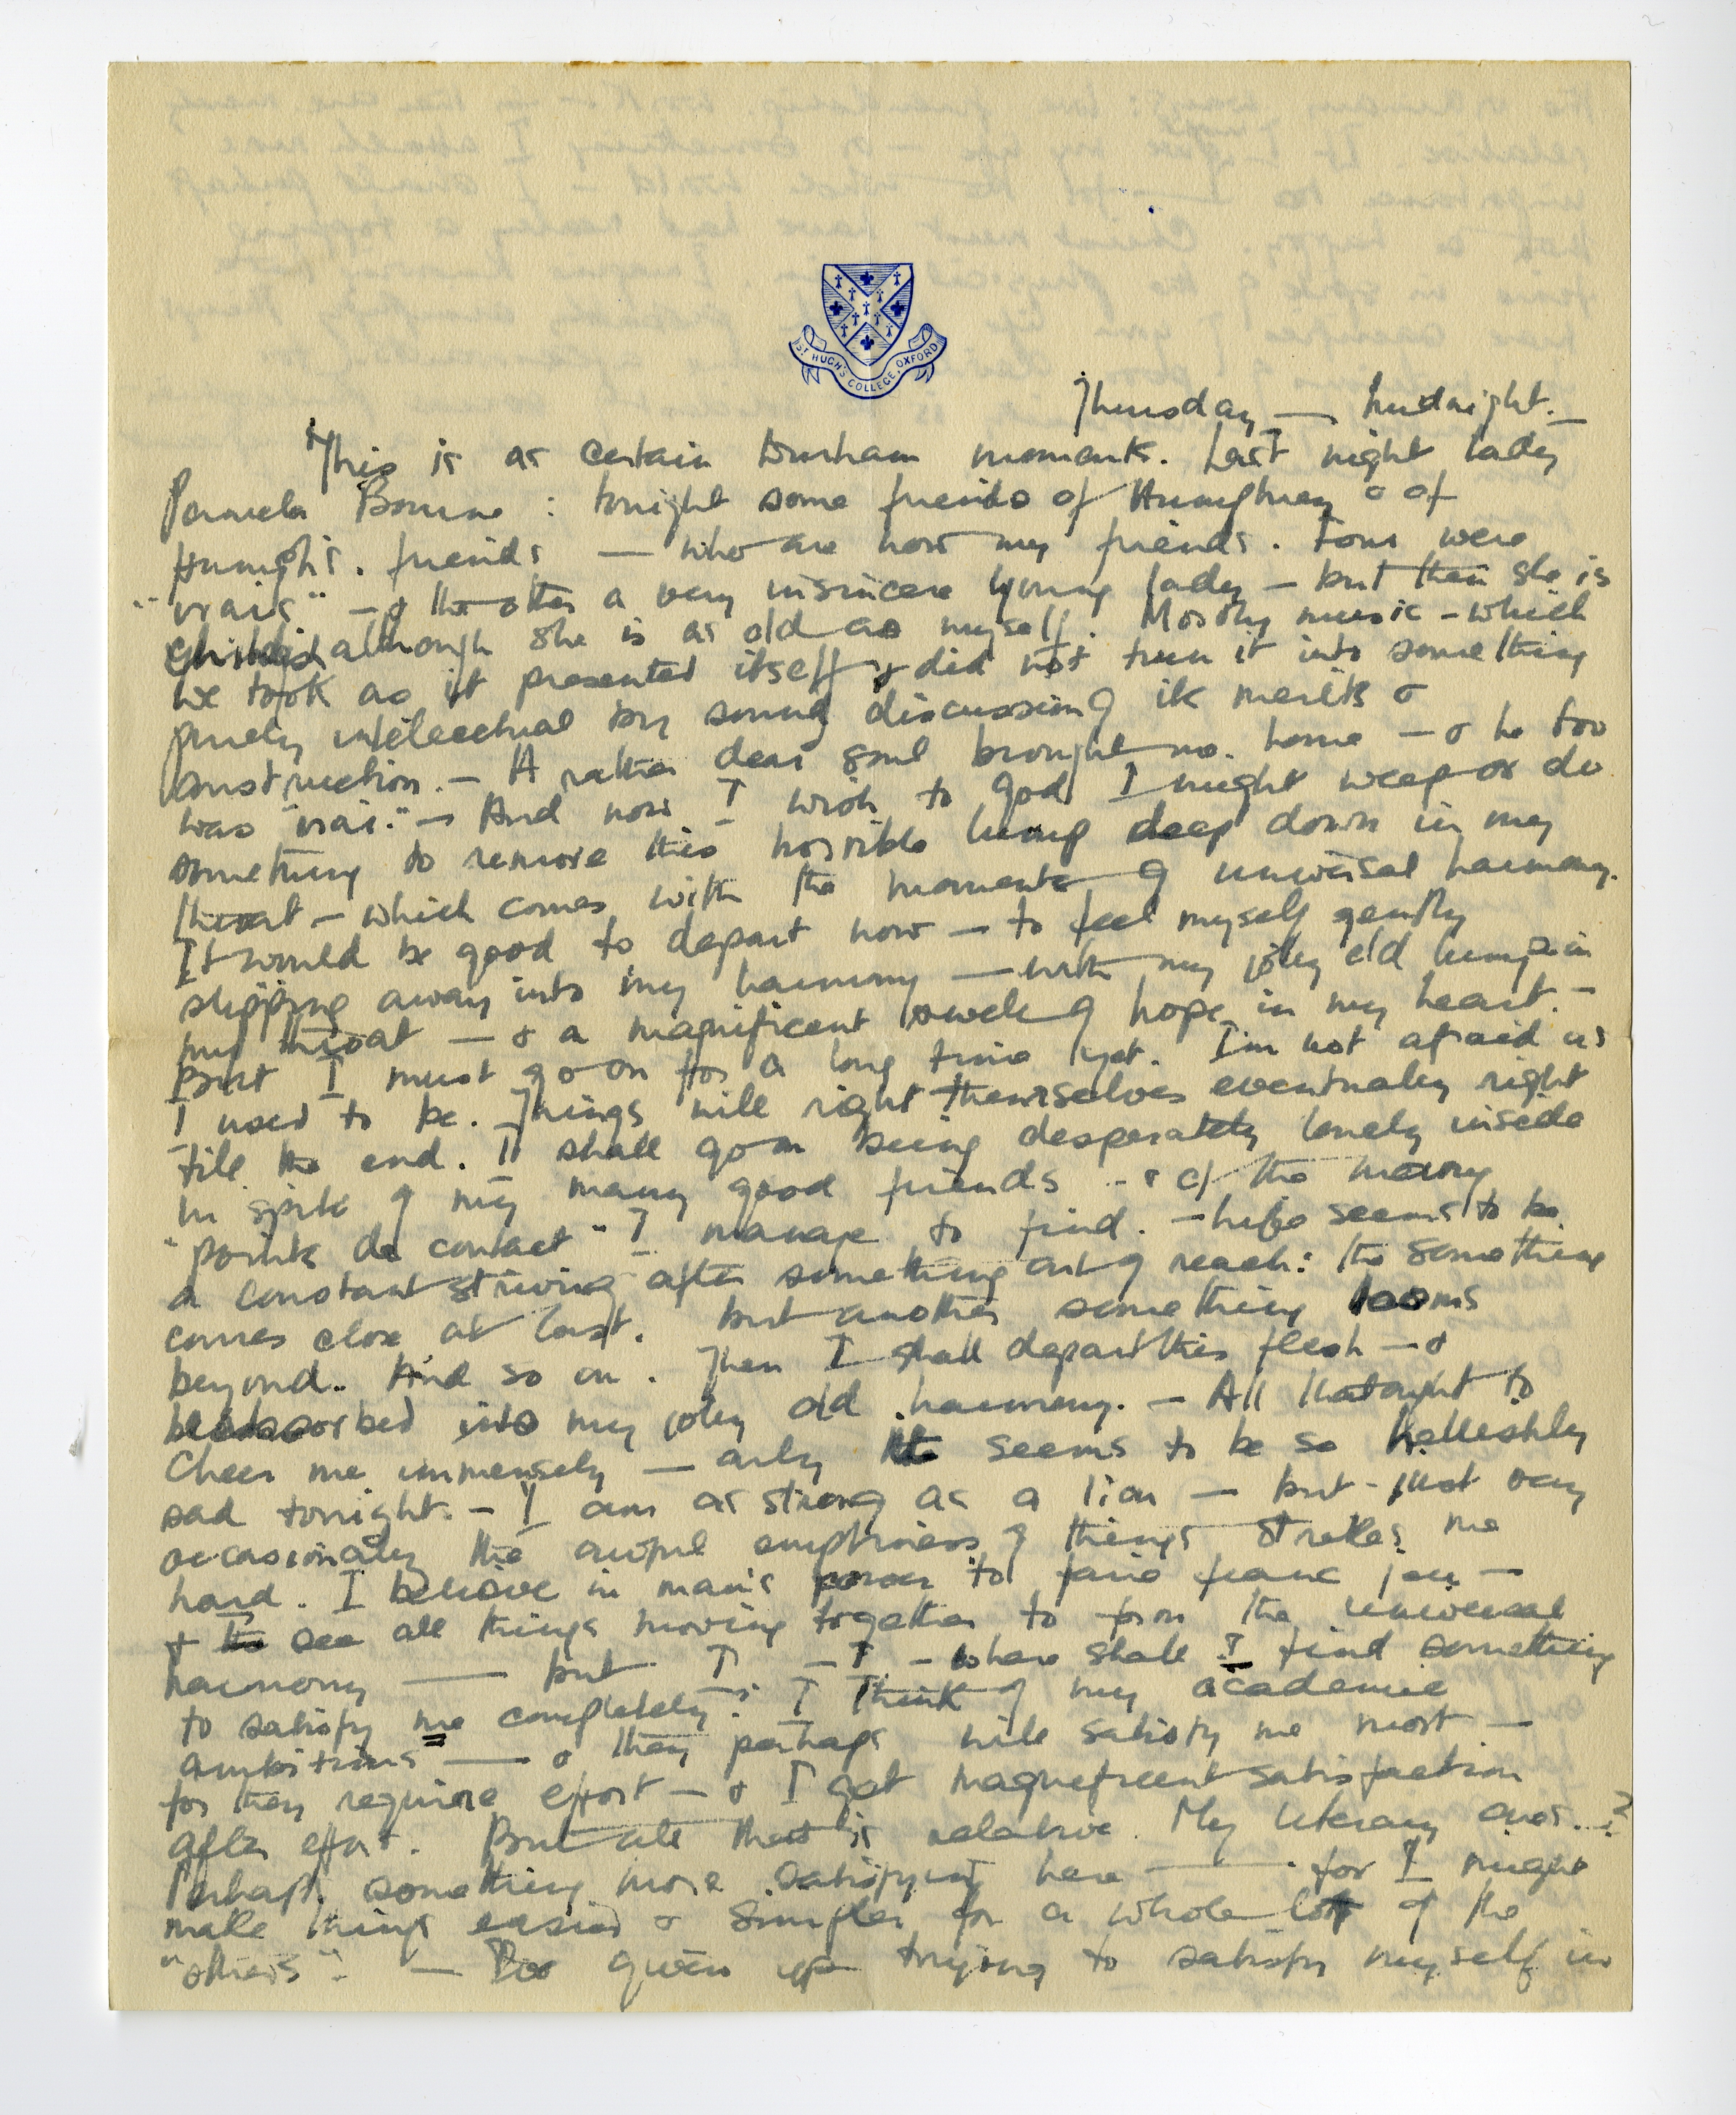 ST HUGH'S COLLEGE, OXFORD
Thursday — Midnight. —
This is as certain Durham moments. Last night Lady
Pamela Bourne : tonight some friends of Humphrey & of
Humph's. friends — who are now my friends. Four were
"vrais" — & the other a very insincere young lady — but then she is
childish although she is as old as myself. Mostly music — which
we took as it presented itself & did not turn it into something
purely intellectual by discussing its merits &
construction. — A rather dear soul brought me home — & he too
was "vrai." — And now I wish to God I might weep or do
something to remove this horrible lump deep down in my
throat — which comes with the moments of universal harmony.
It would be good to depart now — to feel myself gently
slipping away into my harmony — with my jolly old lump in
my throat — & a magnificent swell of hope in my heart. —
But I must go on for a long time yet. I'm not afraid as
I used to be. Things will right themselves eventually right
till the end. I shall go on being desperately lonely inside
in spite of my many good friends — & of the many
"points de contact" I manage to find. — Life seems to be
a constant striving after something out of reach: the something
comes close at last. but another something looms
beyond.. And so on. Then I shall depart this flesh — &
be absorbed into my jolly old harmony. — All that ought to
cheer me immensely — only it seems to be so hellishly
sad tonight. — I am as strong as a lion — but - just very
occasionally the awful emptiness of things strikes me
hard. I believe in man's power to faire franc jeu —
& to see all things moving together to form the universal
harmony — but I — I — where shall I find something
to satisfy me completely? I think of my academic
ambitions — & they perhaps will satisfy me most —
for they require effort — & I get magnificent satisfaction
after effort. But all that is relative. My literary ones..?
Perhaps something more satisfying here — for I might
make things easier & simpler for a whole lot of the
"others". — I've given up trying to satisfy myself in